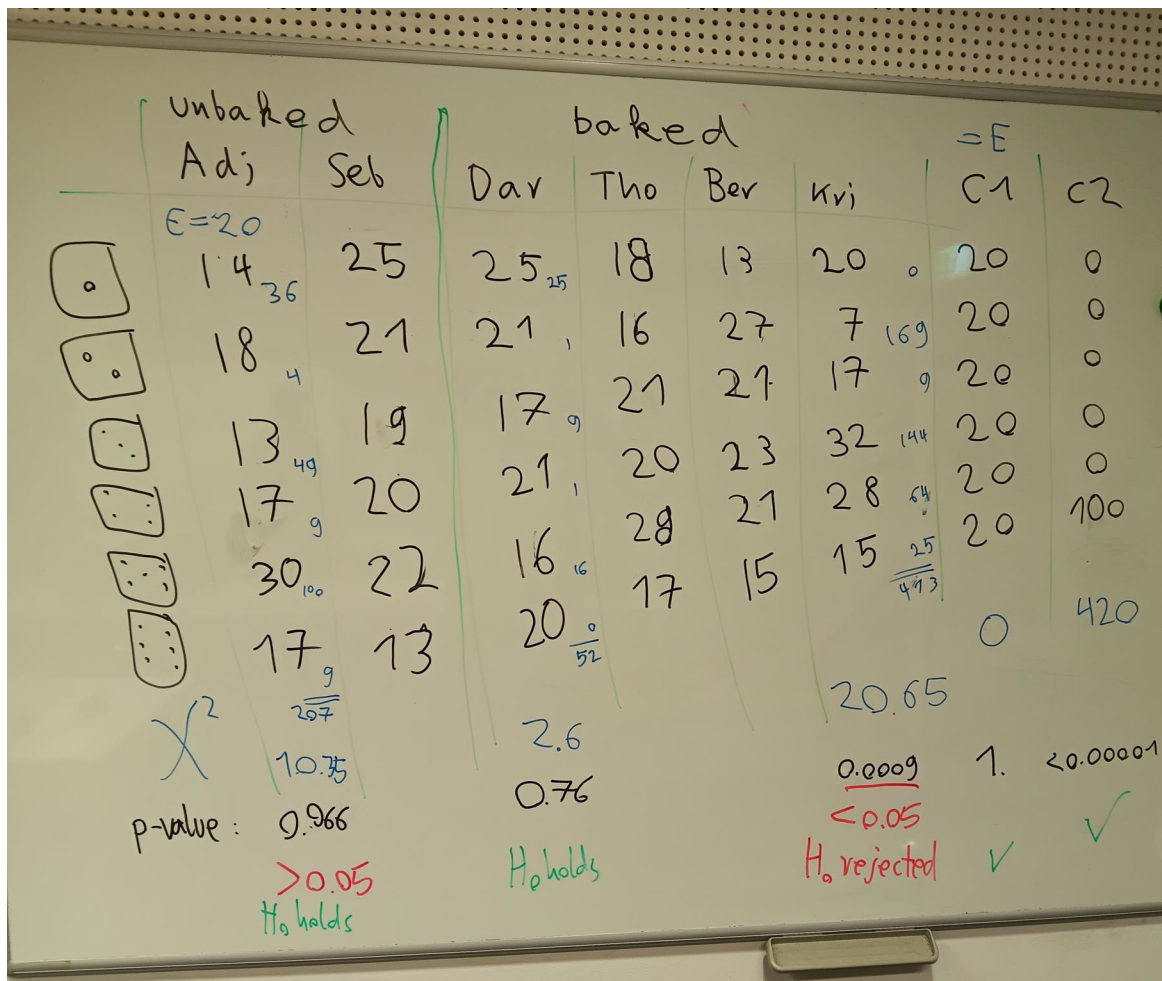 unbaked baked =E
Adj Seb Dar Tho Ber Kri C1 C2
E=20
14 36 25 25 25 18 13 20 0 20 0
18 4 21 21 1 16 27 7 169 20 0
13 49 19 17 9 21 21 17 9 20 0
17 9 20 21 1 20 23 32 144 20 0
30 100 22 16 16 28 21 28 64 20 0
17 9 13 20 0 17 15 15 25 20 100
207 52 473 0 420
X² 10.35 2.6 20.65
p-value: 0.066 0.76 0.0009 1. <0.00001
>0.05 <0.05 ✓ ✓
H₀ holds H₀ holds H₀ rejected